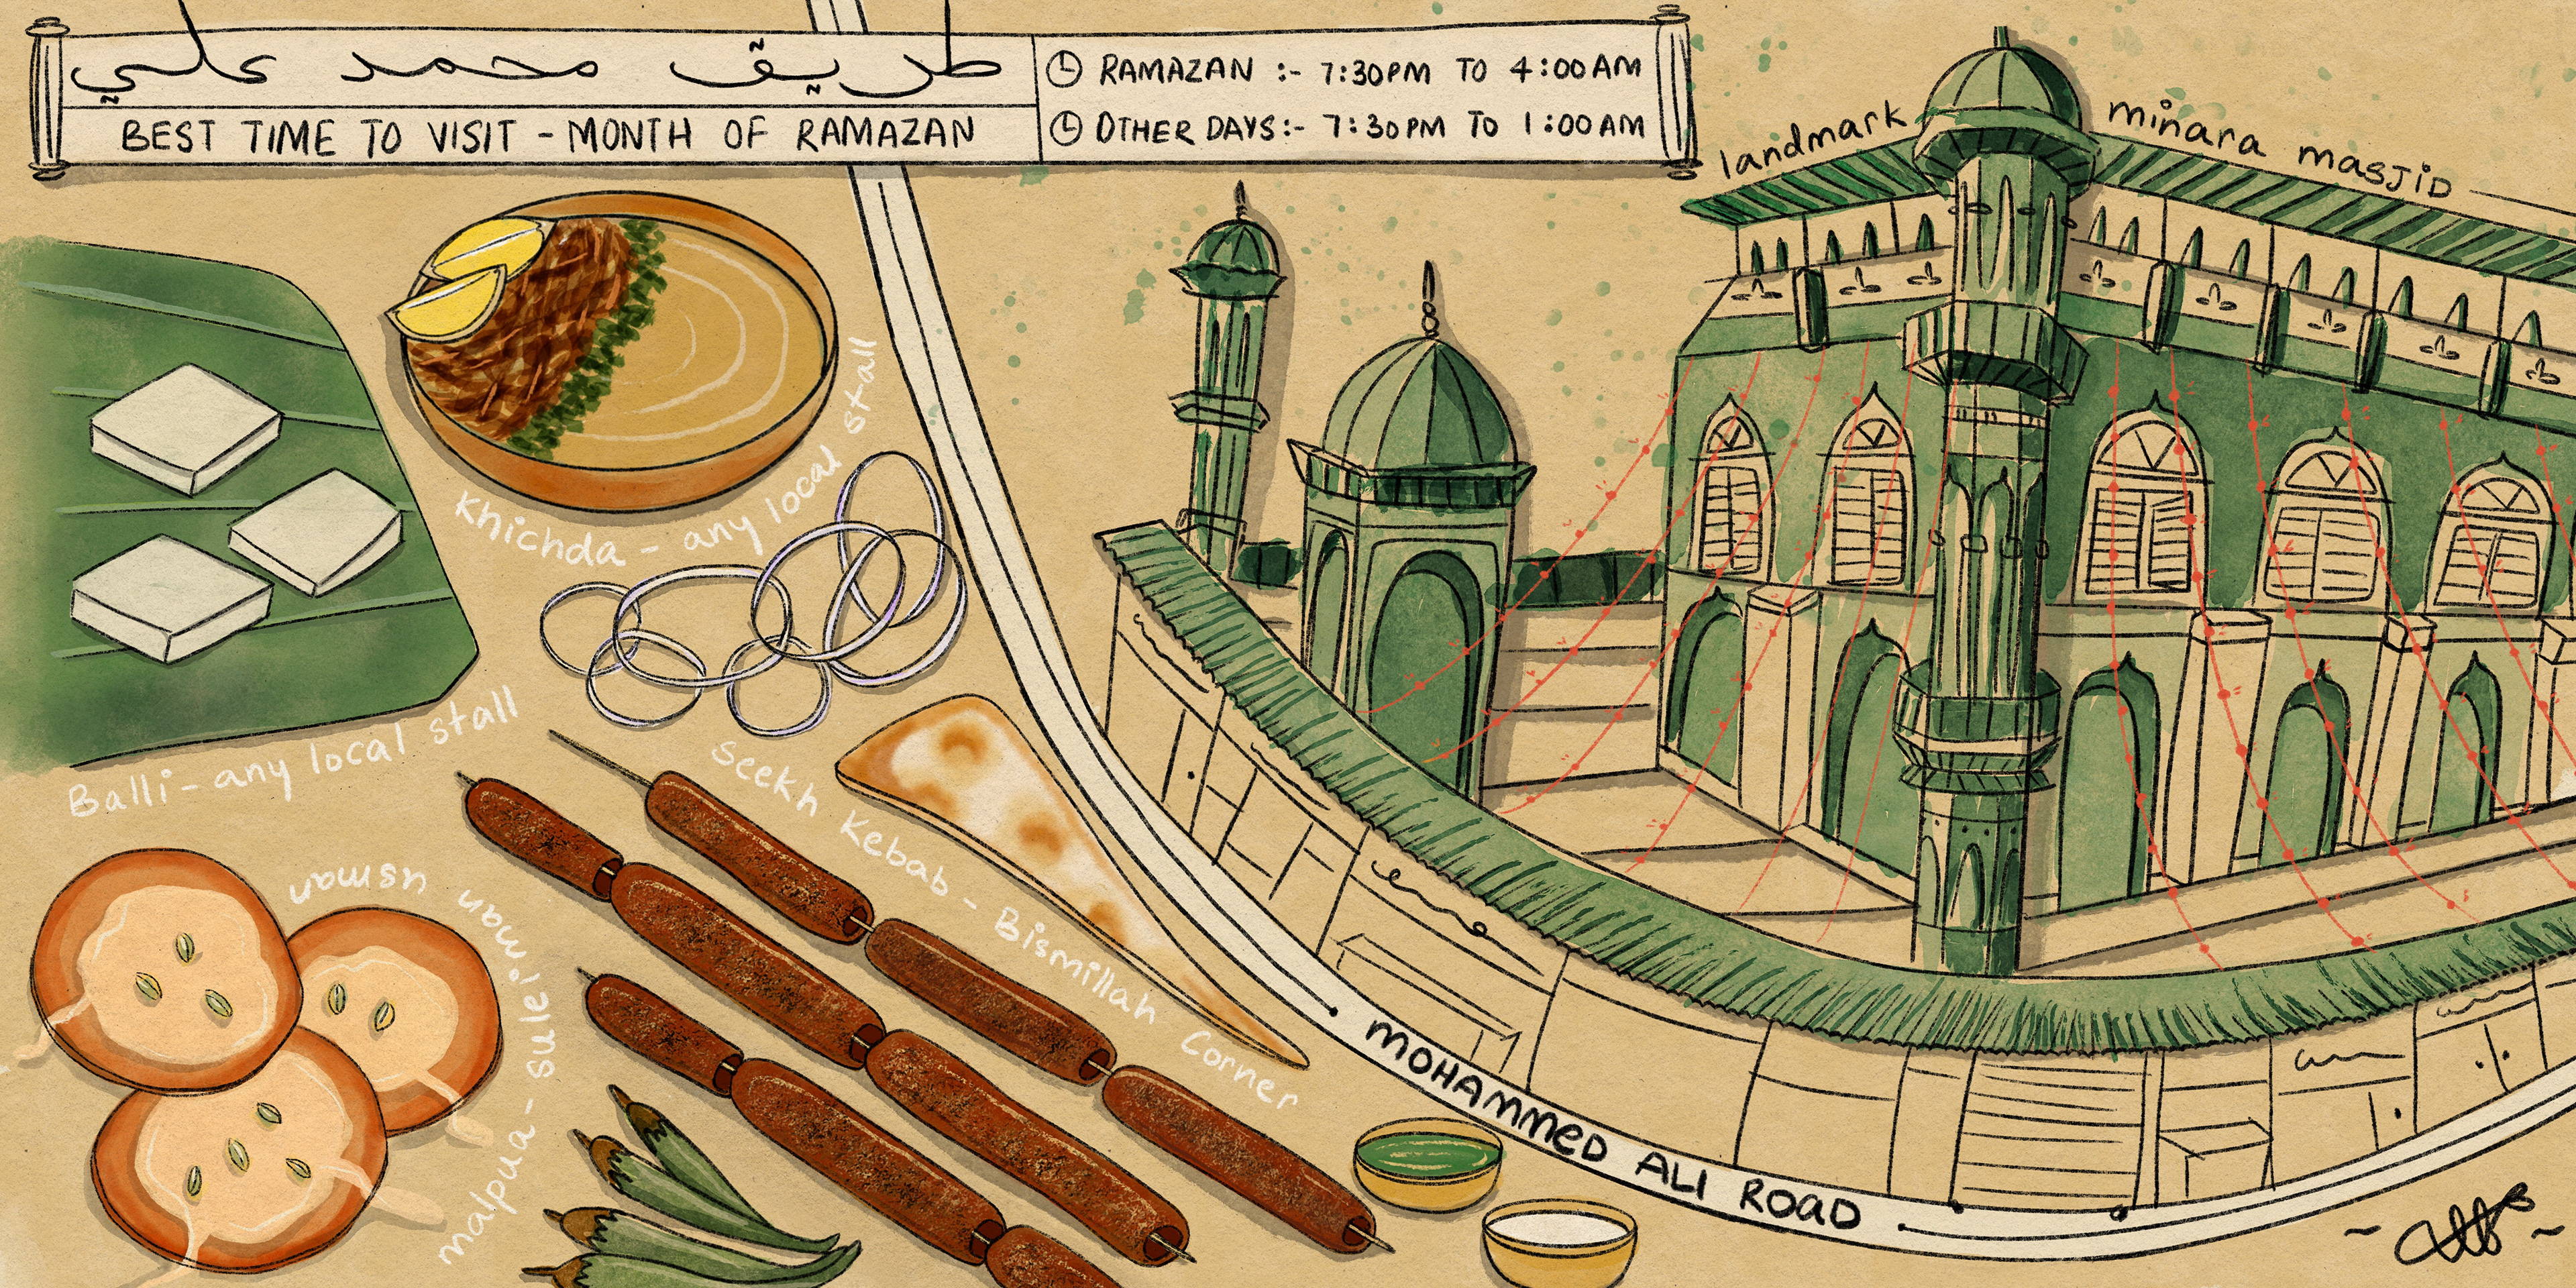 طريق محمد علي
BEST TIME TO VISIT - MONTH OF RAMAZAN
RAMAZAN :- 7:30PM TO 4:00AM
OTHER DAYS:- 7:30PM TO 1:00AM
landmark minara masjid
Khichda - any local stall
Balli - any local stall
Seekh Kebab - Bismillah Corner
malpua - sulei'man usman
MOHAMMED ALI ROAD